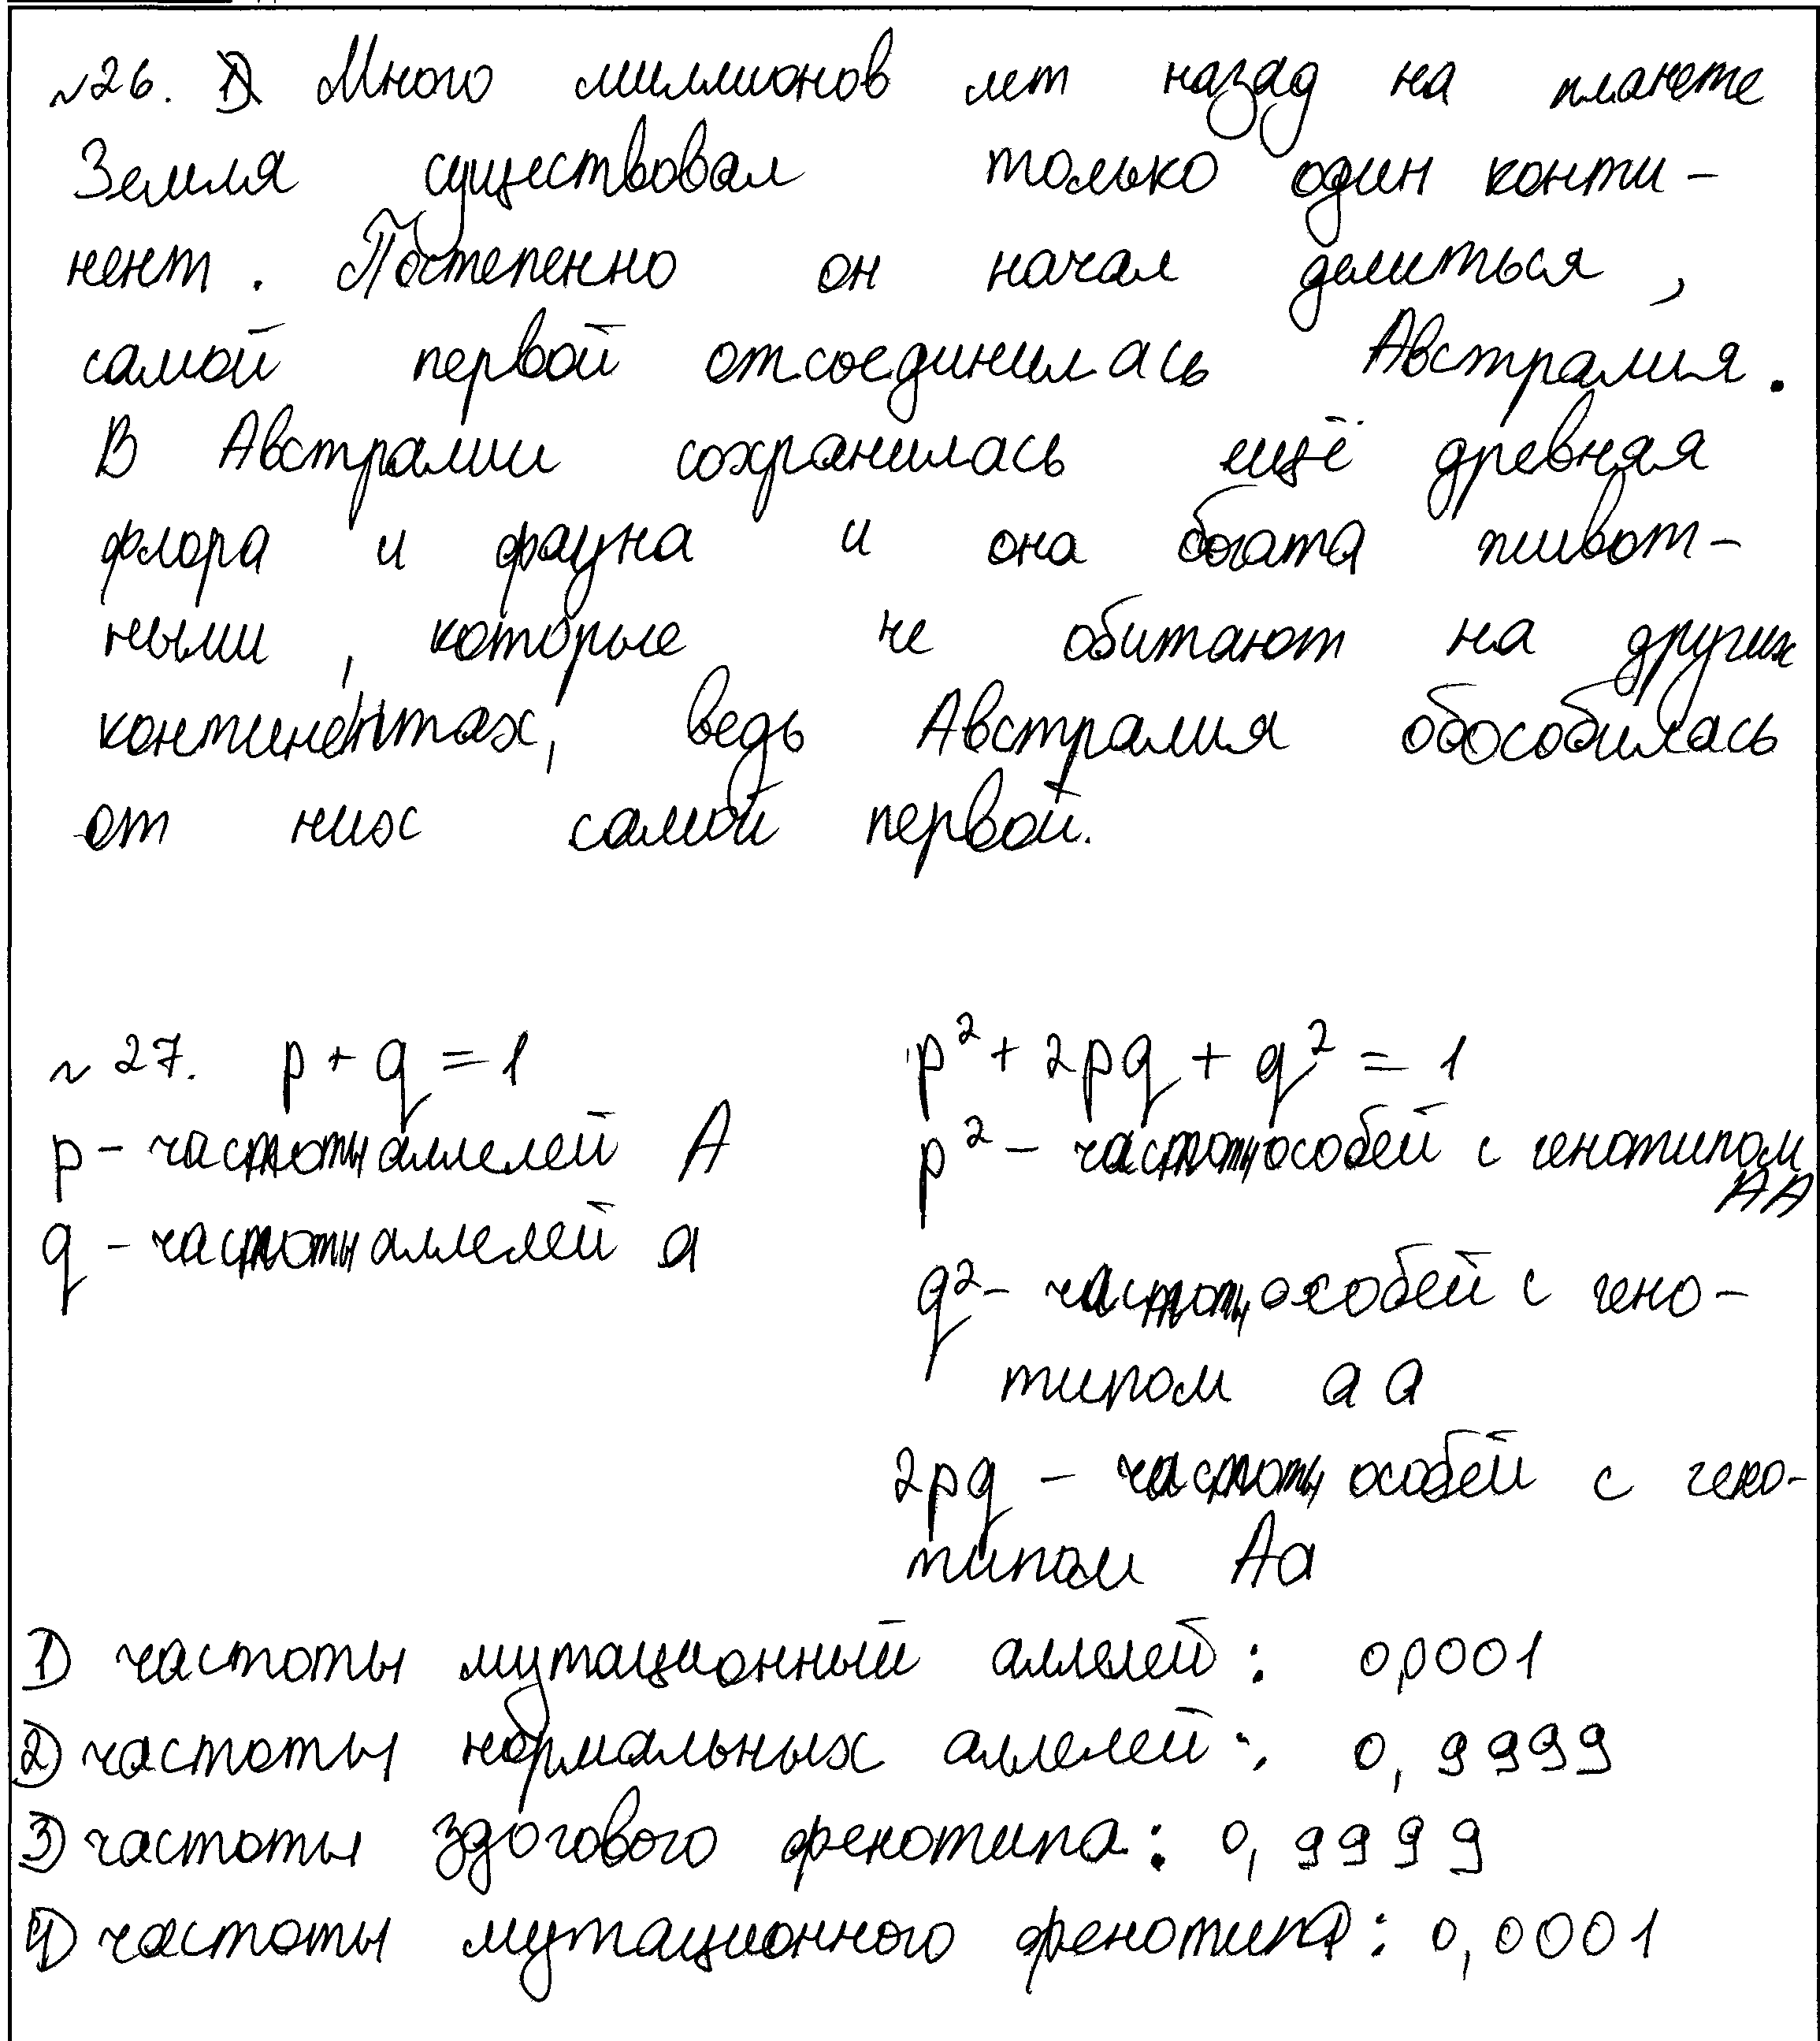 №26. Много миллионов лет назад на планете
Земля существовал только один конти-
нент. Постепенно он начал делиться,
самой первой отсоединилась Австралия.
В Австралии сохранилась ещё древняя
флора и фауна и она богата живот-
ными, которые не обитают на других
континентах, ведь Австралия обособилась
от них самой первой.
№27. p + q = 1
p - частоты аллелей A
q - частоты аллелей a
p² + 2pq + q² = 1
p² - частоты особей с генотипом
AA
q² - частоты особей с гено-
типом aa
2pq - частоты особей с гено-
типом Aa
1) частоты мутационный аллелей: 0,0001
2) частоты нормальных аллелей: 0,9999
3) частоты здорового фенотипа: 0,9999
4) частоты мутационного фенотипа: 0,0001